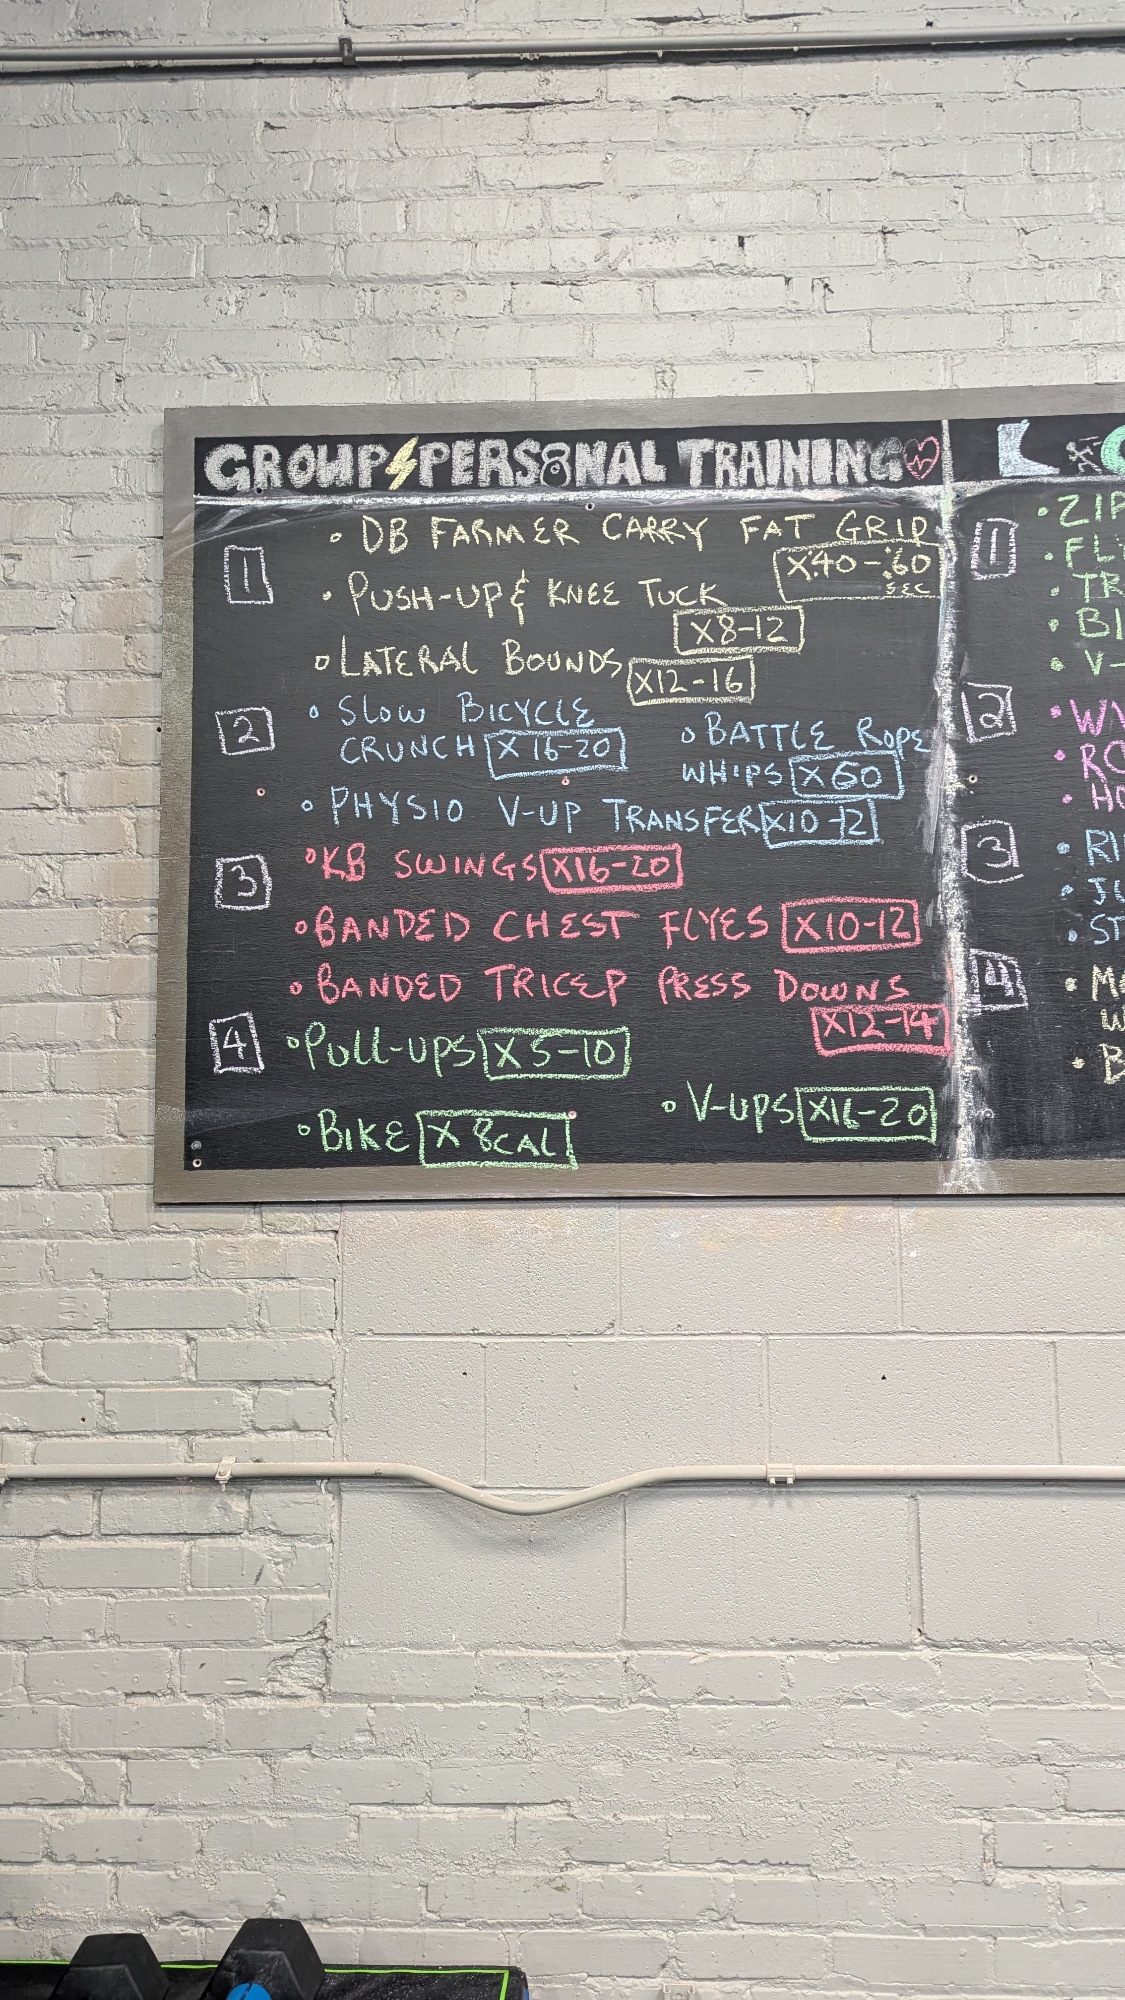 GROUP⚡PERSONAL TRAINING
1
• DB FARMER CARRY FAT GRIP
X:40-:60
SEC
• PUSH-UP & KNEE TUCK
X8-12
• LATERAL BOUNDS X12-16
2
• SLOW BICYCLE
CRUNCH X 16-20
• BATTLE ROPE
WHIPS X 60
• PHYSIO V-UP TRANSFER X10-12
3
• KB SWINGS X16-20
• BANDED CHEST FLYES X10-12
• BANDED TRICEP PRESS DOWNS
X12-14
4
• PULL-UPS X 5-10
• BIKE X 8CAL
• V-UPS X16-20
1
• ZIP
• FLY
• TR
• BI
• V-
2
• RO
• HO
3
• RI
• ST
4
• B